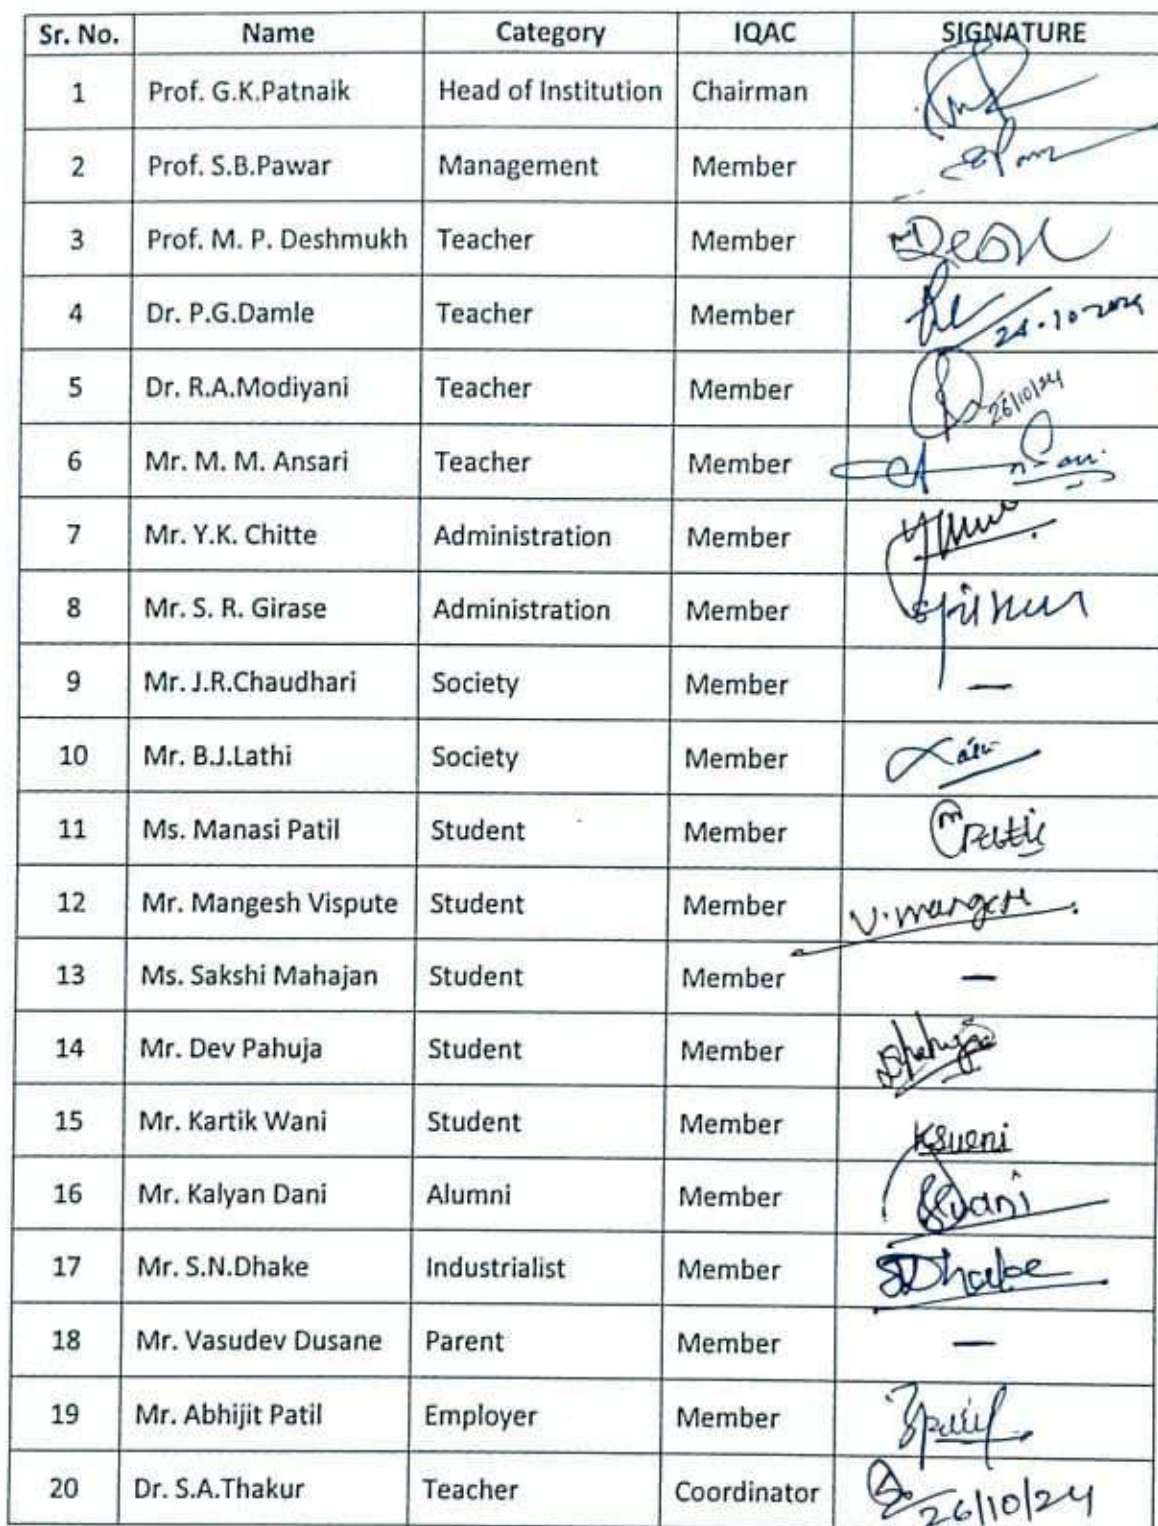 Sr. No. Name Category IQAC SIGNATURE
1 Prof. G.K.Patnaik Head of Institution Chairman
2 Prof. S.B.Pawar Management Member
3 Prof. M. P. Deshmukh Teacher Member
4 Dr. P.G.Damle Teacher Member
5 Dr. R.A.Modiyani Teacher Member 26/10/24
6 Mr. M. M. Ansari Teacher Member
7 Mr. Y.K. Chitte Administration Member
8 Mr. S. R. Girase Administration Member
9 Mr. J.R.Chaudhari Society Member —
10 Mr. B.J.Lathi Society Member
11 Ms. Manasi Patil Student Member
12 Mr. Mangesh Vispute Student Member V.mangesh
13 Ms. Sakshi Mahajan Student Member —
14 Mr. Dev Pahuja Student Member
15 Mr. Kartik Wani Student Member
16 Mr. Kalyan Dani Alumni Member
17 Mr. S.N.Dhake Industrialist Member SDhake
18 Mr. Vasudev Dusane Parent Member —
19 Mr. Abhijit Patil Employer Member
20 Dr. S.A.Thakur Teacher Coordinator 26/10/24